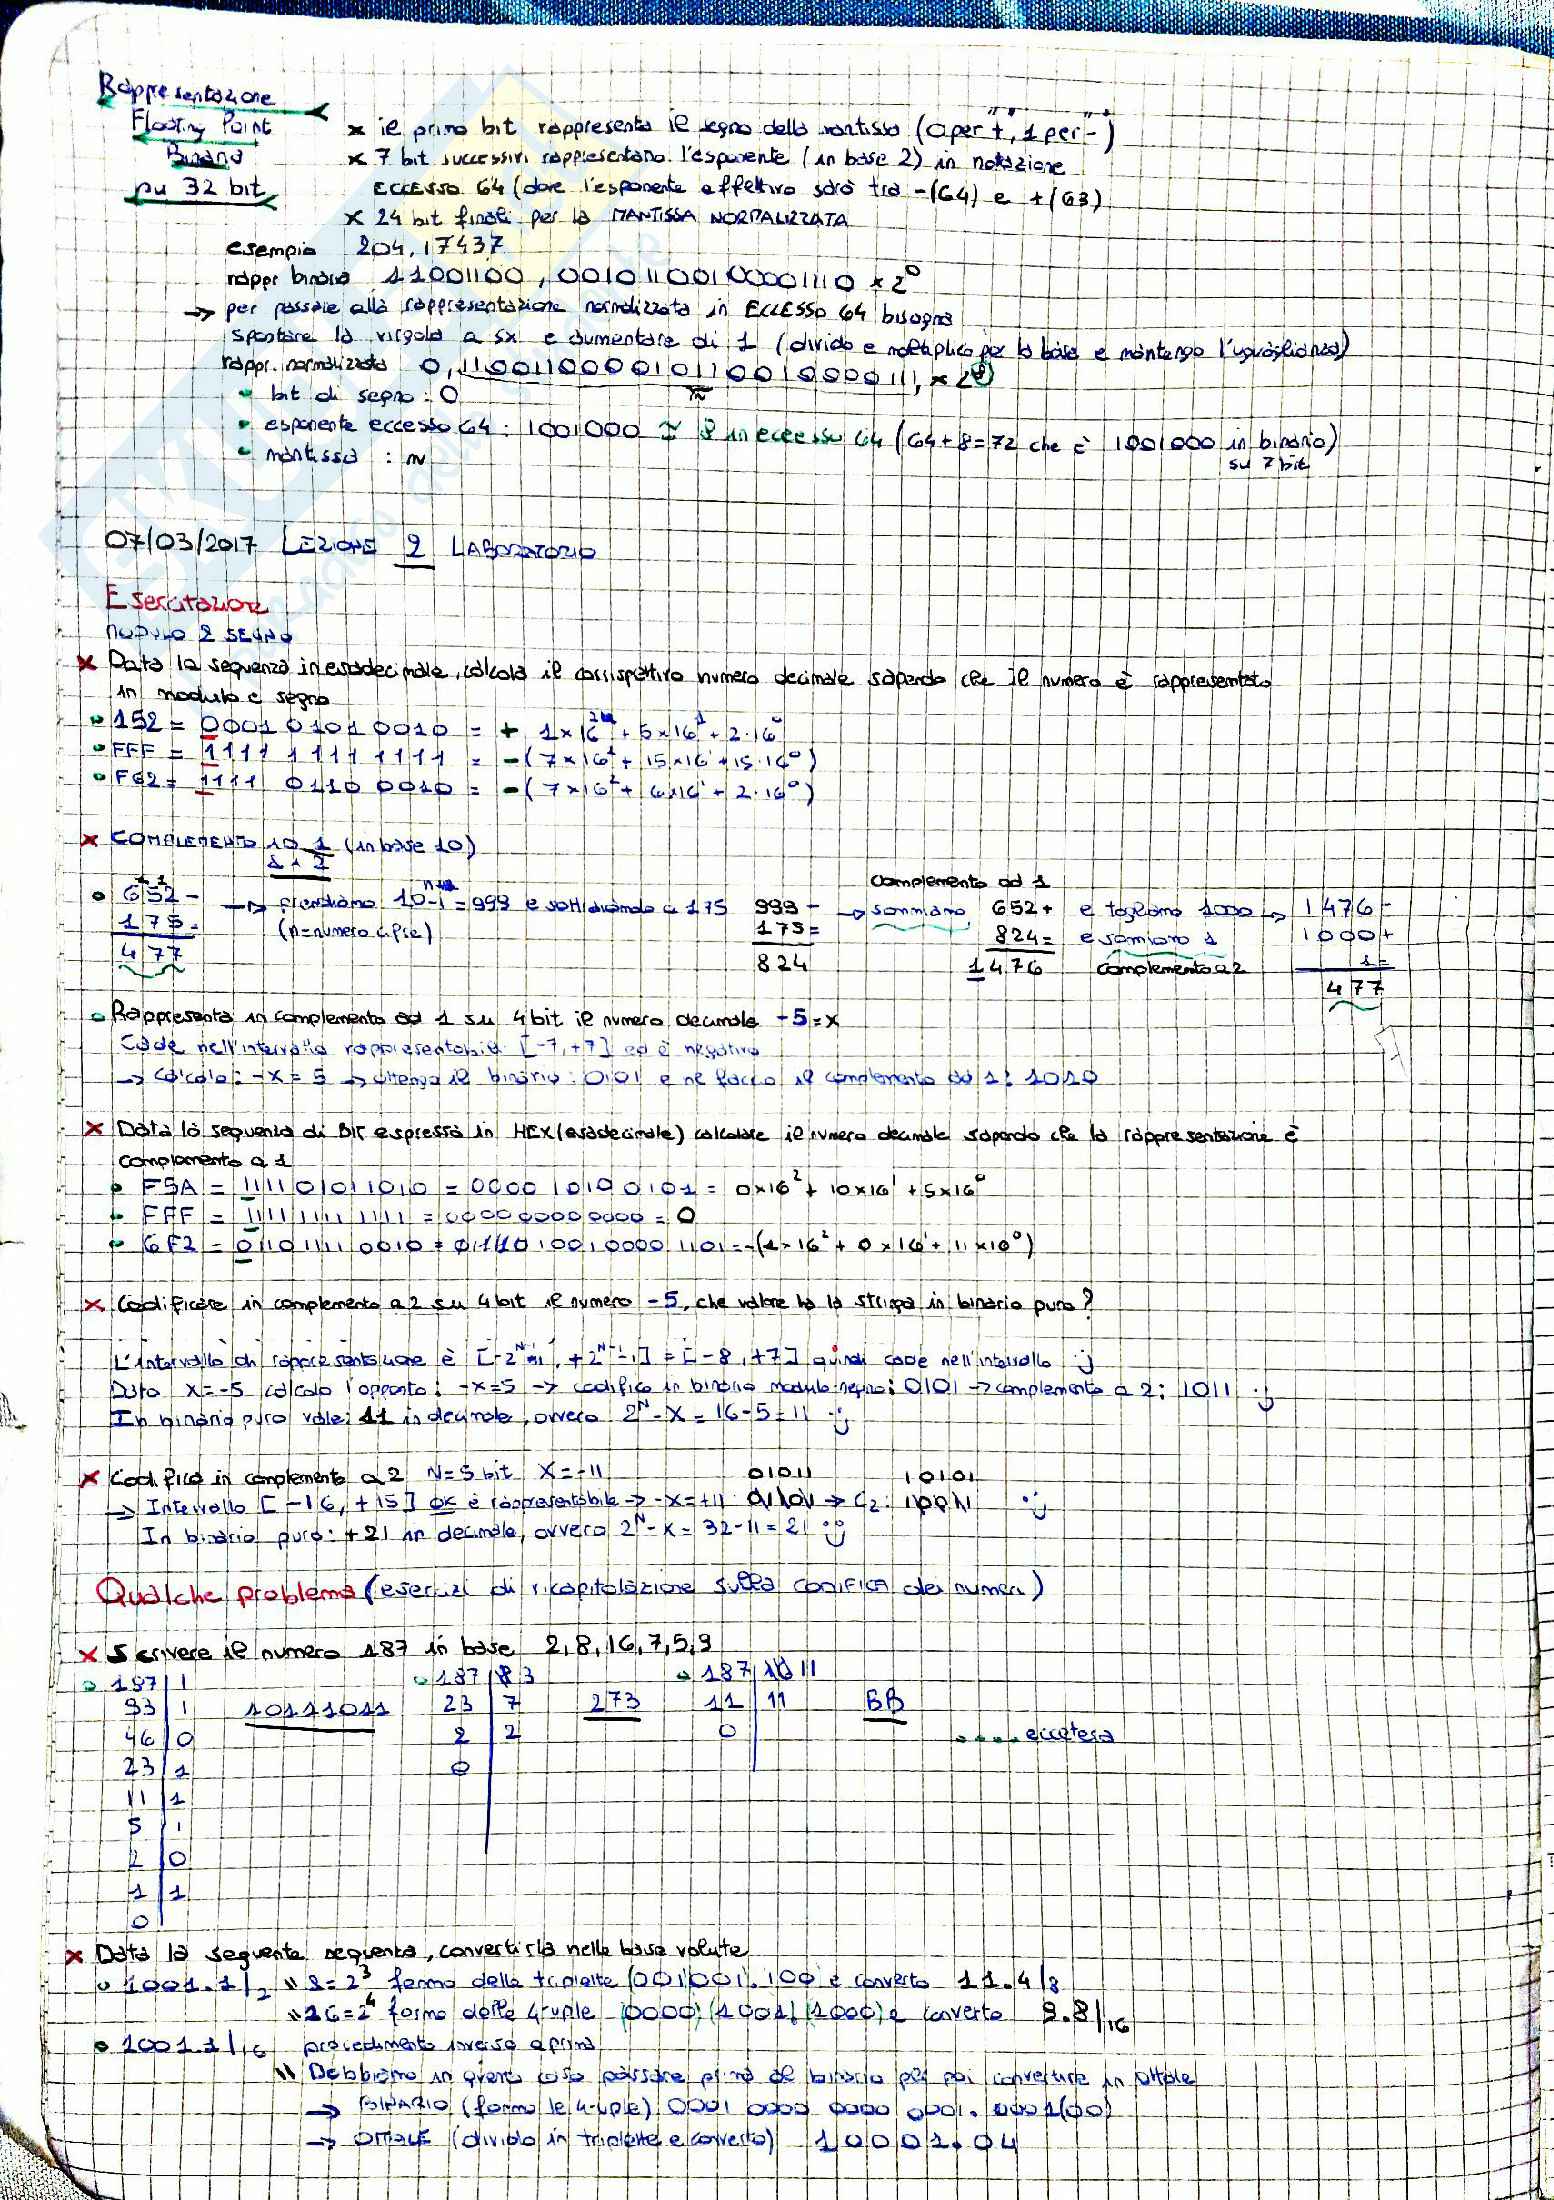 Rappresentazione
Floating Point
Binaria
su 32 bit
x il primo bit rappresenta il segno della mantissa (0 per "+", 1 per "-")
x 7 bit successivi rappresentano l'esponente (in base 2) in notazione
ECCESSO 64 (dove l'esponente effettivo sarà tra -(64) e +(63)
x 24 bit finali per la MANTISSA NORMALIZZATA
esempio 204,17437
rappr binaria 11001100,00101100100001110 x 2^0
→ per passare alla rappresentazione normalizzata in ECCESSO 64 bisogna
spostare la virgola a sx e aumentare di 1 (divido e moltiplico per la base e mantengo l'uguaglianza)
rappr. normalizzata 0,110011000010110010000111, x 2^8
m
• bit di segno: 0
• esponente eccesso 64: 1001000 ≈ 8 in eccesso 64 (64+8=72 che è 1001000 in binario)
su 7 bit
• mantissa : m
07/03/2017 LEZIONE 2 LABORATORIO
Esercitazione
MODULO E SEGNO
x Data la sequenza in esadecimale, calcola il corrispettivo numero decimale sapendo che il numero è rappresentato
in modulo e segno
• 152 = 0001 0101 0010 = + 1x16^2 + 5x16^1 + 2·16^0
• FFF = 1111 1111 1111 = -(7x16^2 + 15x16^1 + 15·16^0)
• F62 = 1111 0110 0010 = -(7x16^2 + 6x16^1 + 2·16^0)
x COMPLEMENTO AD 1 (in base 10)
A 2
complemento ad 1
• 652- → prendiamo 10^n-1 = 999 e sottraiamo a 175 999- → sommiamo 652+ e togliamo 1000 → 1476-
175= (n=numero cifre) 175= 824= e sommiamo 1 1000+
477 824 1476 complemento a 2 1=
477
• Rappresenta in complemento ad 1 su 4 bit il numero decimale -5=x
Cade nell'intervallo rappresentabile [-7,+7] ed è negativo
→ Calcolo: -x=5 → ottengo il binario: 0101 e ne faccio il complemento ad 1: 1010
x Data la sequenza di BIT espressa in HEX (esadecimale) calcolare il numero decimale sapendo che la rappresentazione è
complemento a 1
• F5A = 111101011010 = 000010100101 = 0x16^2 + 10x16^1 + 5x16^0
• FFF = 111111111111 = 000000000000 = 0
• 6F2 = 011011110010 =
x Codificare in complemento a 2 su 4 bit il numero -5, che valore ha la stringa in binario puro?
L'intervallo di rappresentazione è [-2^N-1, +2^N-1-1] = [-8,+7] quindi cade nell'intervallo :)
Dato x=-5 calcolo l'opposto: -x=5 → codifico in binario modulo segno: 0101 → complemento a 2: 1011 :)
In binario puro vale: 11 in decimale, ovvero 2^N-X = 16-5=11 :)
x Codifica in complemento a 2 N=5 bit X=-11 01011 10101
→ Intervallo [-16,+15] OK è rappresentabile → -x=+11 → C2: :)
In binario puro: +21 in decimale, ovvero 2^N-X = 32-11=21 :)
Qualche problema (esercizi di ricapitolazione sulla CODIFICA dei numeri)
x Scrivere il numero 187 in base 2,8,16,7,5,9
• 187|1 • 187|3 • 187|11
93|1 10111011 23|7 273 11|11 BB
46|0 2|2 0 ....eccetera
23|1 0
11|1
5|1
2|0
1|1
0
x Data la seguente sequenza, convertirla nelle base volute
• 1001.1|2 \\ 8=2^3 formo delle triplette (001)001.100 e converto 11.4|8
\\ 16=2^4 formo delle 4-uple (0000)(1001)(1000) e converto 9.8|16
• 1001.1|16 procedimento inverso a prima
\\ Dobbiamo in questo caso passare prima al binario per poi convertire in ottale
→ BINARIO (formo le 4-uple) 0001 0000 0000 0001. 0001(00)
→ OTTALE (divido in triplette e converto) 10001.04